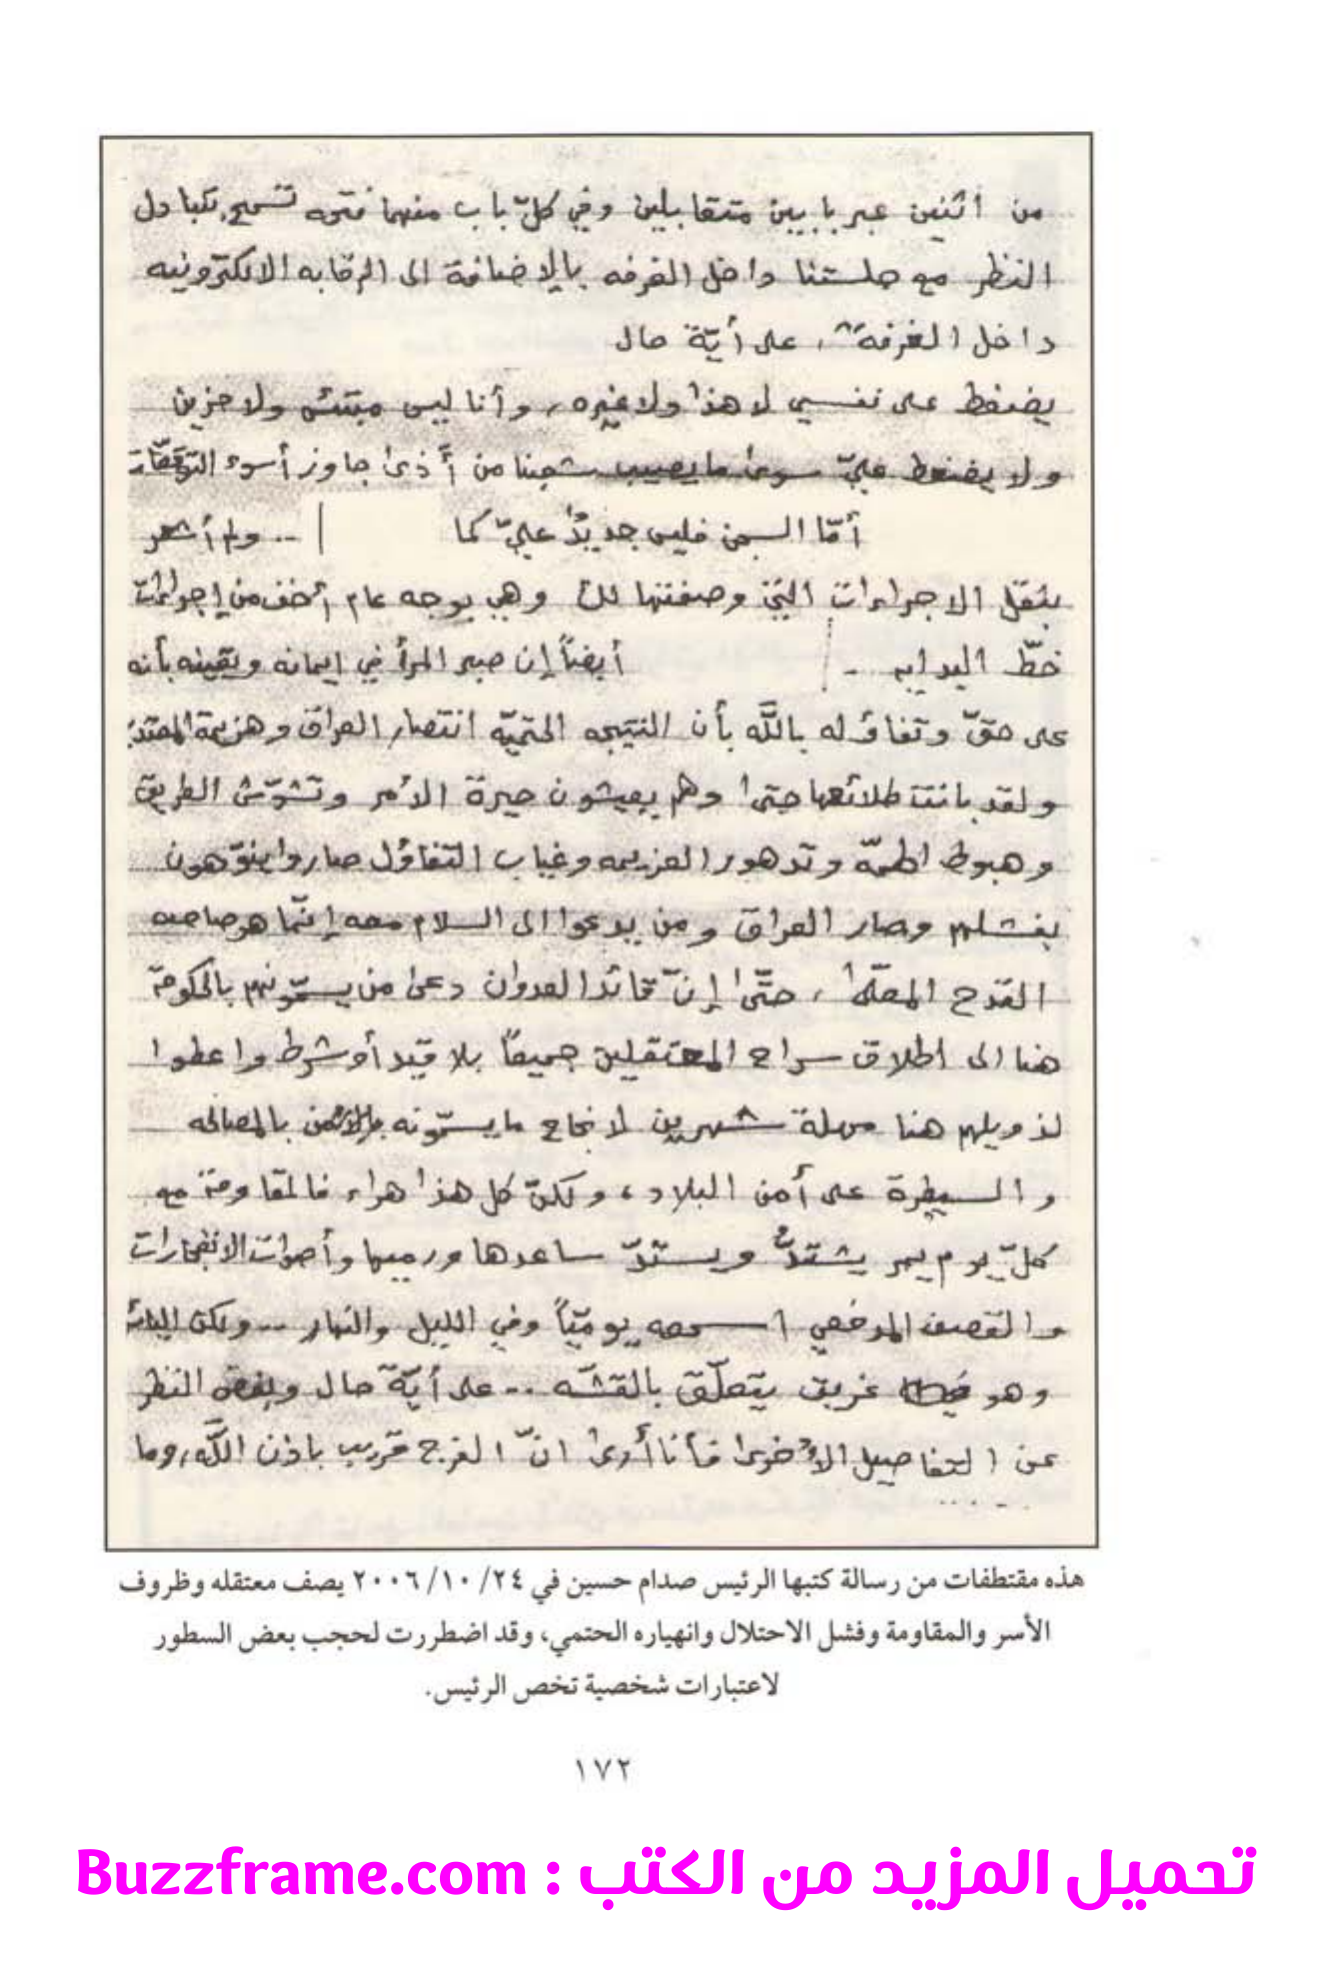 من اثنين عبر بابين متقابلين وفي كلّ باب منهما فتحه تسمح بتبادل
النظر مع جلستنا داخل الغرفه بالاضافة الى الرقابه الالكترونيه
داخل الغرفة، على أيّة حال
يضغط على نفسي لا هذا ولا غيره، وأنا ليس مبتئس ولا حزين
ولا يضغط عليّ سوى ما يصيب شعبنا من أذى جاوز أسوء التوقّعات
أمّا السجن فليس جديدٌ عليّ كما .. ولم أشعر
بثقل الاجراءات التي وصفتها لك وهي بوجه عام أخف من إجراءات
خطّ البدايه .. أيضاً إن صبر المرأ في ايمانه ويقينه بأنه
على حقّ وتفاؤله باللَّه بأن النتيجه الحتميّه انتصار العراق وهزيمة المعتدي
ولقد بانت طلائعها حتى وهم يعيشون حيرة الأمر وتشوّش الطريق
وهبوط الهمّه وتدهور العزيمه وغياب التفاؤل صاروا ينوّهون
بفشلهم وصار العراق ومن يدعوا الى السلام معه إنّما هو صاحب
القدح المعلّى، حتّى إنّ قائد العدوان دعى من يسمّونهم بالحكومة
هنا الى اطلاق سراح المعتقلين جميعاً بلا قيد أو شرط واعطوا
لذويلهم هنا مهلة شهرين لانجاح ما يسمّونه بالمصالحه
والسيطرة على أمن البلاد، ولكنّ كل هذا هراء فالمقاومة مع
كلّ يوم يمر يشتدُّ ويستدّ ساعدها ورميها وأصوات الانفجارات
والقصف المدفعي اسمعه يوميّاً وفي الليل والنهار .. ولكن
وهو غريق يتعلّق بالقشّه .. على أيّة حال وبغض النظر
عن التفاصيل الأخرى فأنا أرى انّ الفرج قريب باذن اللَّه، وما
هذه مقتطفات من رسالة كتبها الرئيس صدام حسين في ٢٤/ ١٠/ ٢٠٠٦ يصف معتقله وظروف
الأسر والمقاومة وفشل الاحتلال وانهياره الحتمي، وقد اضطررت لحجب بعض السطور
لاعتبارات شخصية تخص الرئيس.
١٧٢
تحميل المزيد من الكتب : Buzzframe.com